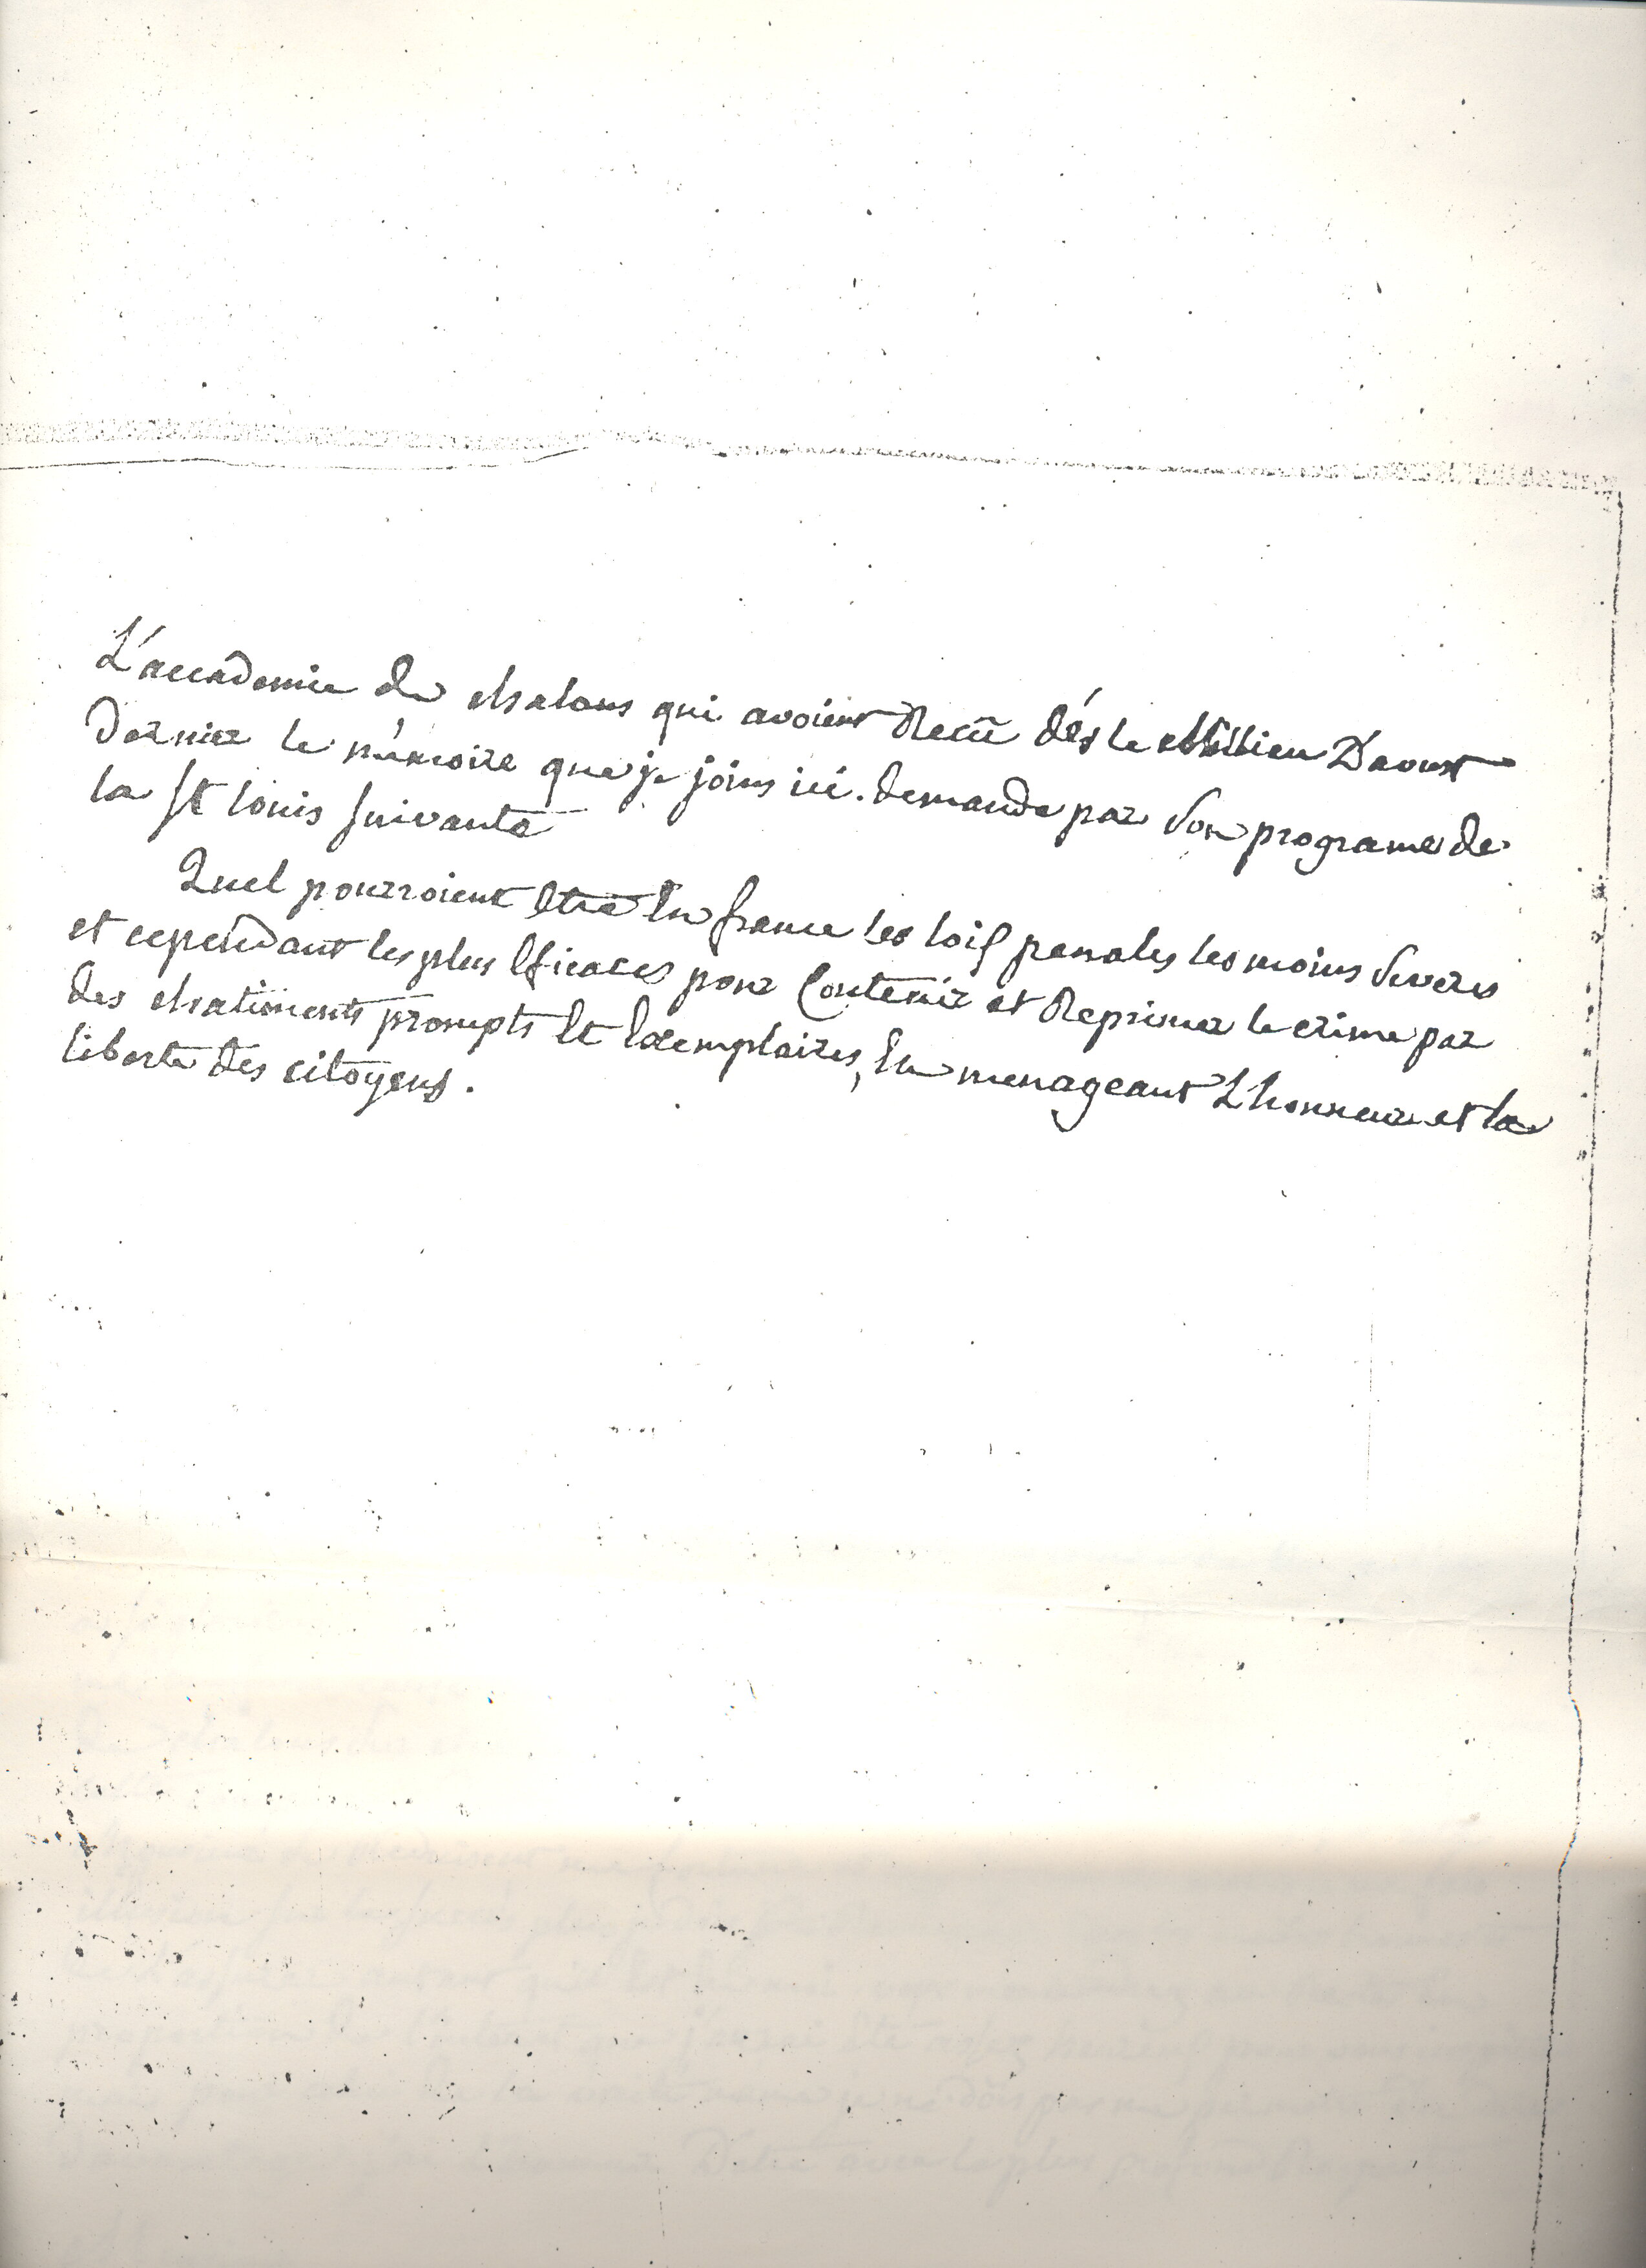 L'accademie de chalons qui avoient Recû dés le Milieu D'aoust
Dernier le mémoire que je joins ici. demande par Son programe de
la St louis suivante
Quel pourroient Etre En france les loix penales les moins Severes
et cependant les plus Eficaces pour Contenir et Reprimer le crime par
des chatiments prompts Et Exemplaires, En menageant L'honneur et la
liberté des citoyens.